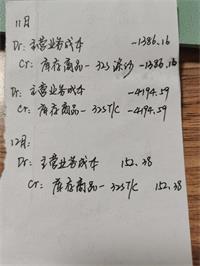 11月
Dr: 主营业务成本 -1386.16
Cr: 库存商品-32S涤纱 -1386.16
Dr: 主营业务成本 -4194.59
Cr: 库存商品-32ST/C -4194.59
12月:
Dr: 主营业务成本 152.38
Cr: 库存商品-32ST/C 152.38